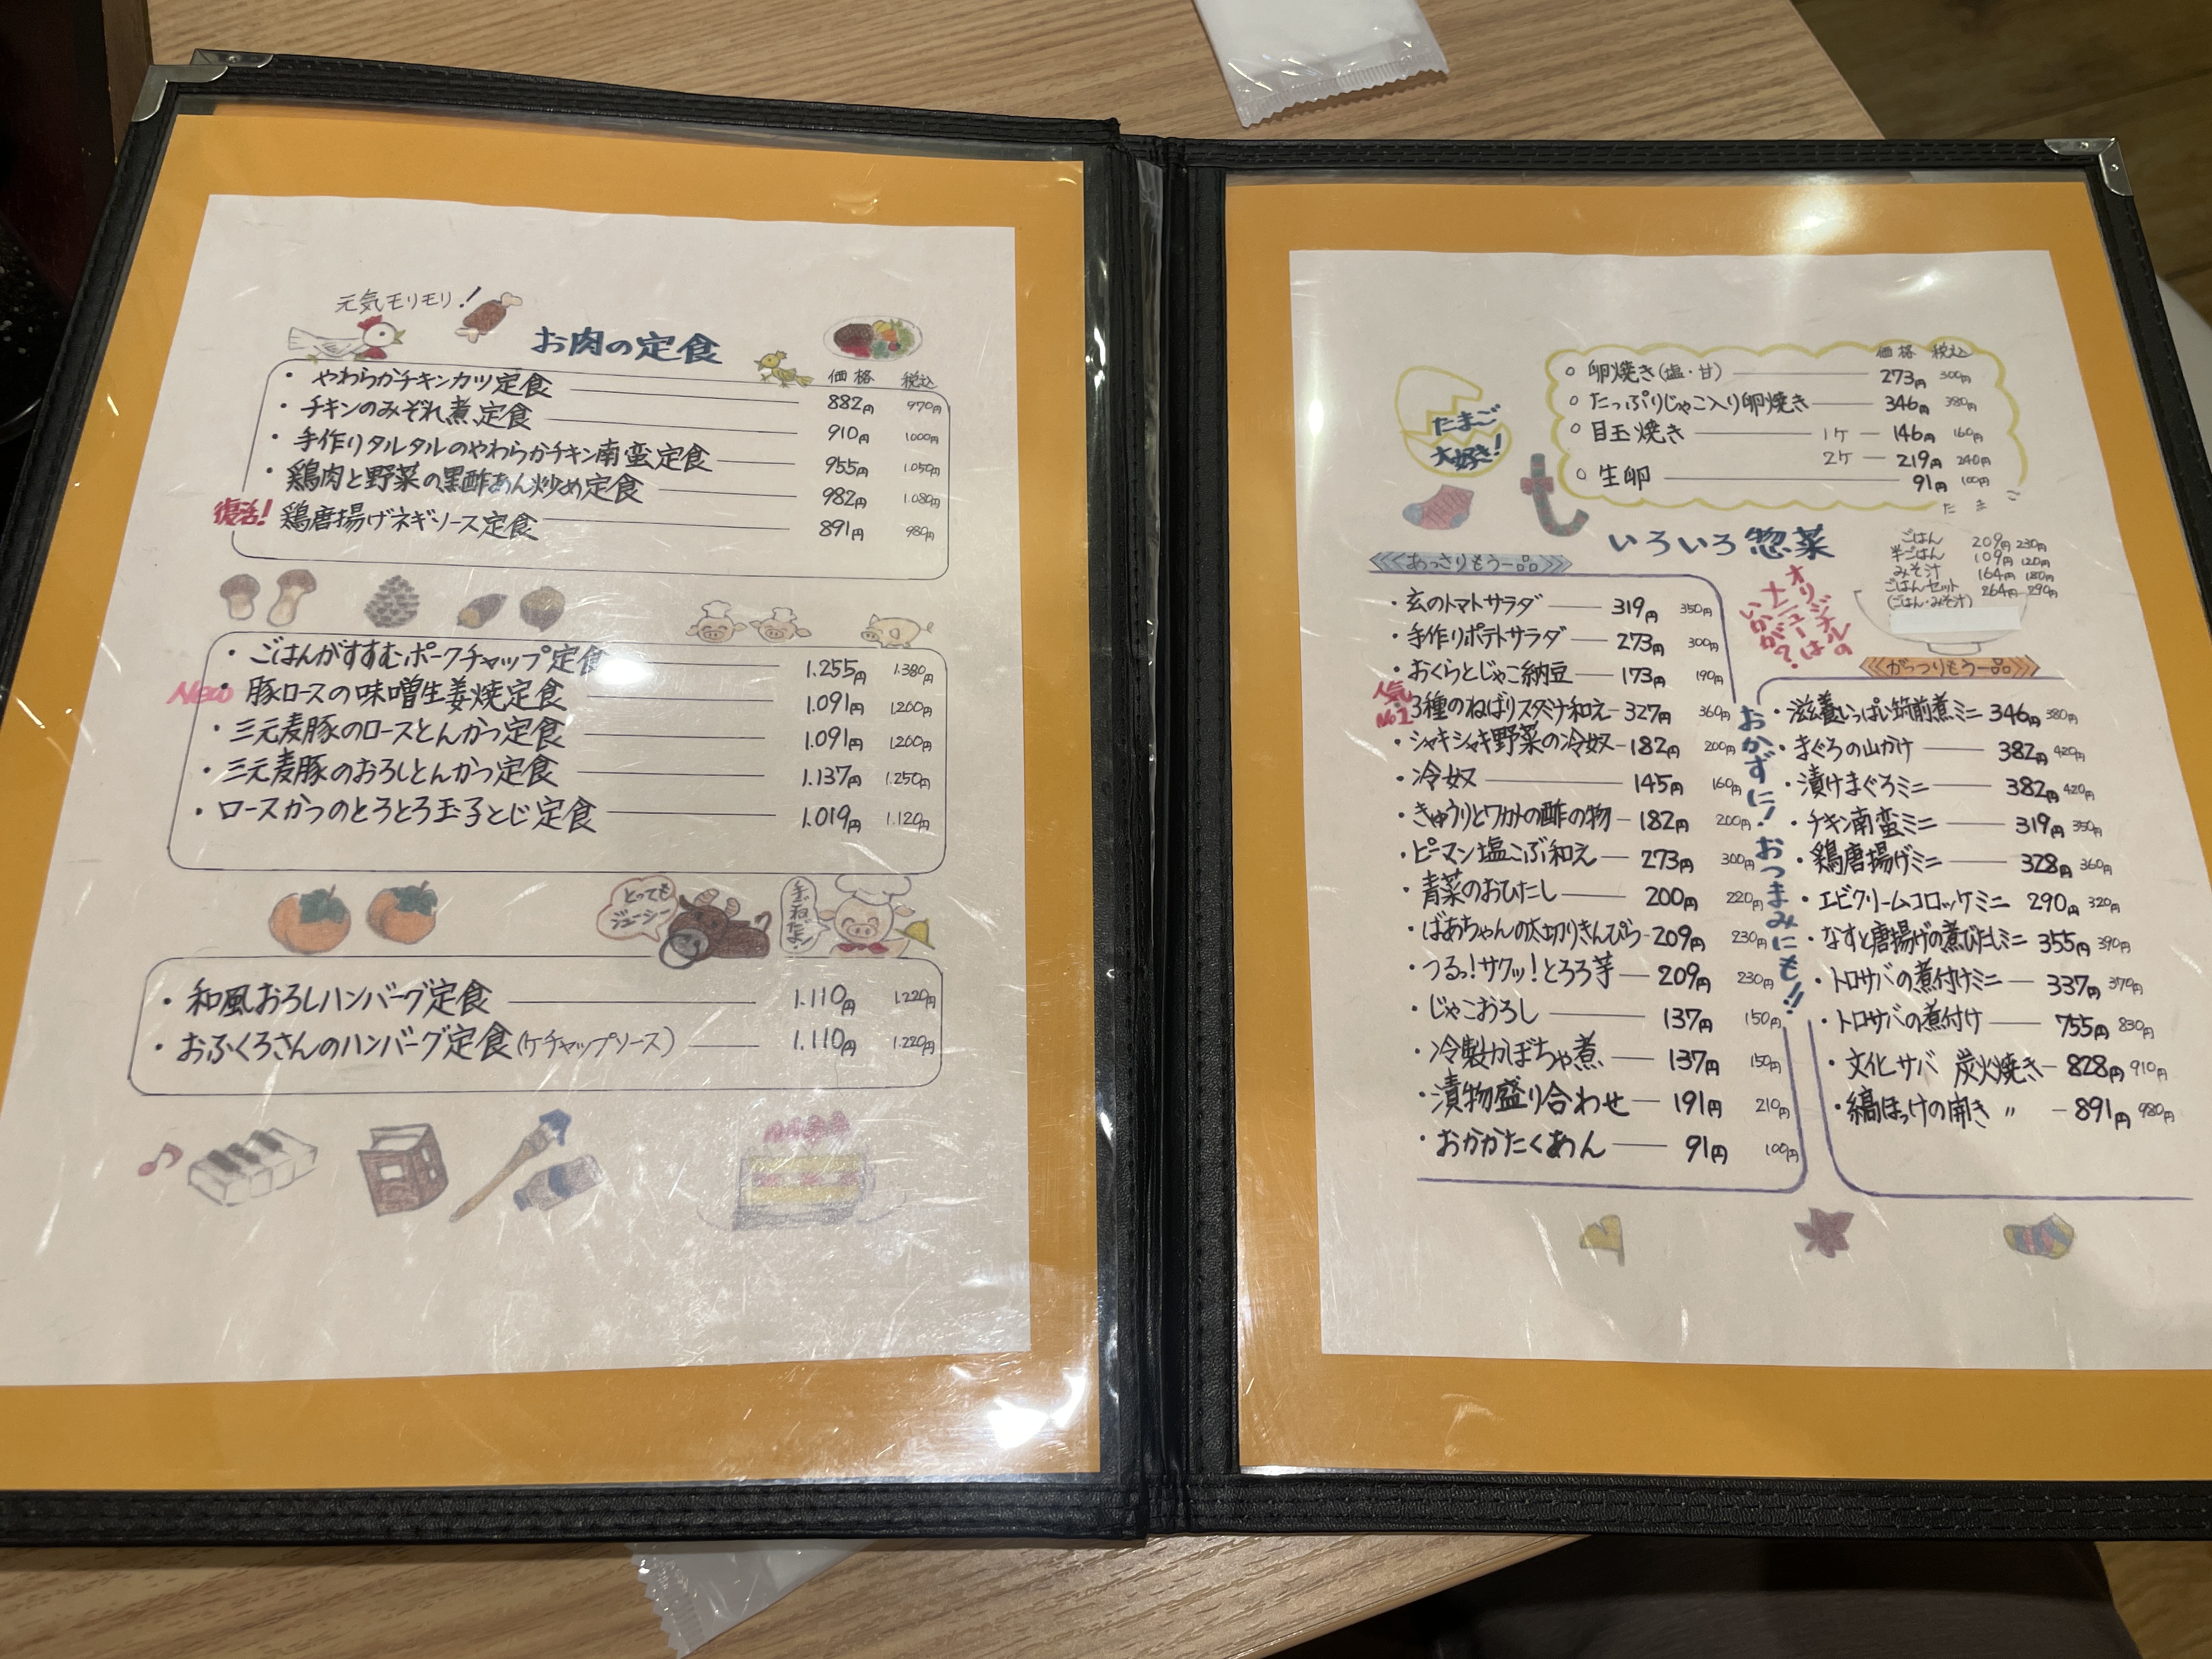 元気モリモリ!
お肉の定食
価格 税込
・やわらかチキンカツ定食 882円 970円
・チキンのみぞれ煮定食 910円 1000円
・手作りタルタルのやわらかチキン南蛮定食 955円 1.050円
・鶏肉と野菜の黒酢あん炒め定食 982円 1.080円
復活! 鶏唐揚げネギソース定食 891円 980円
・ごはんがすすむポークチャップ定食 1.255円 1.380円
New 豚ロースの味噌生姜焼定食 1.091円 1.200円
・三元麦豚のロースとんかつ定食 1.091円 1.200円
・三元麦豚のおろしとんかつ定食 1.137円 1.250円
・ロースかつのとろとろ玉子とじ定食 1.019円 1.120円
とっても
ジューシー
手ごねだよ!
・和風おろしハンバーグ定食 1.110円 1.220円
・おふくろさんのハンバーグ定食(ケチャップソース) 1.110円 1.220円
たまご
大好き!
価格 税込
○ 卵焼き(塩・甘) 273円 300円
○ たっぷりじゃこ入り卵焼き 346円 380円
○ 目玉焼き 1ケ 146円 160円
2ケ 219円 240円
○ 生卵 91円 100円
たまご
いろいろ惣菜
ごはん 209円 230円
半ごはん 109円 120円
みそ汁 164円 180円
ごはんセット 264円 290円
(ごはん・みそ汁)
オリジナルの
メニューは
いかが?
あっさりもう一品
・玄のトマトサラダ 319円 350円
・手作りポテトサラダ 273円 300円
・おくらとじゃこ納豆 173円 190円
人気No1 3種のねばりスタミナ和え 327円 360円
・シャキシャキ野菜の冷奴 182円 200円
・冷奴 145円 160円
・きゅうりとワカメの酢の物 182円 200円
・ピーマン塩こぶ和え 273円 300円
・青菜のおひたし 200円 220円
・ばあちゃんの太切りきんぴら 209円 230円
・つるっ!サクッ!とろろ芋 209円 230円
・じゃこおろし 137円 150円
・冷製かぼちゃ煮 137円 150円
・漬物盛り合わせ 191円 210円
・おかかたくあん 91円 100円
おかずに!おつまみにも!!
がっつりもう一品
・滋養いっぱい筑前煮ミニ 346円 380円
・まぐろの山かけ 382円 420円
・漬けまぐろミニ 382円 420円
・チキン南蛮ミニ 319円 350円
・鶏唐揚げミニ 328円 360円
・エビクリームコロッケミニ 290円 320円
・なすと唐揚げの煮びたしミニ 355円 390円
・トロサバの煮付けミニ 337円 370円
・トロサバの煮付け 755円 830円
・文化サバ 炭火焼き 828円 910円
・縞ほっけの開き 〃 891円 980円